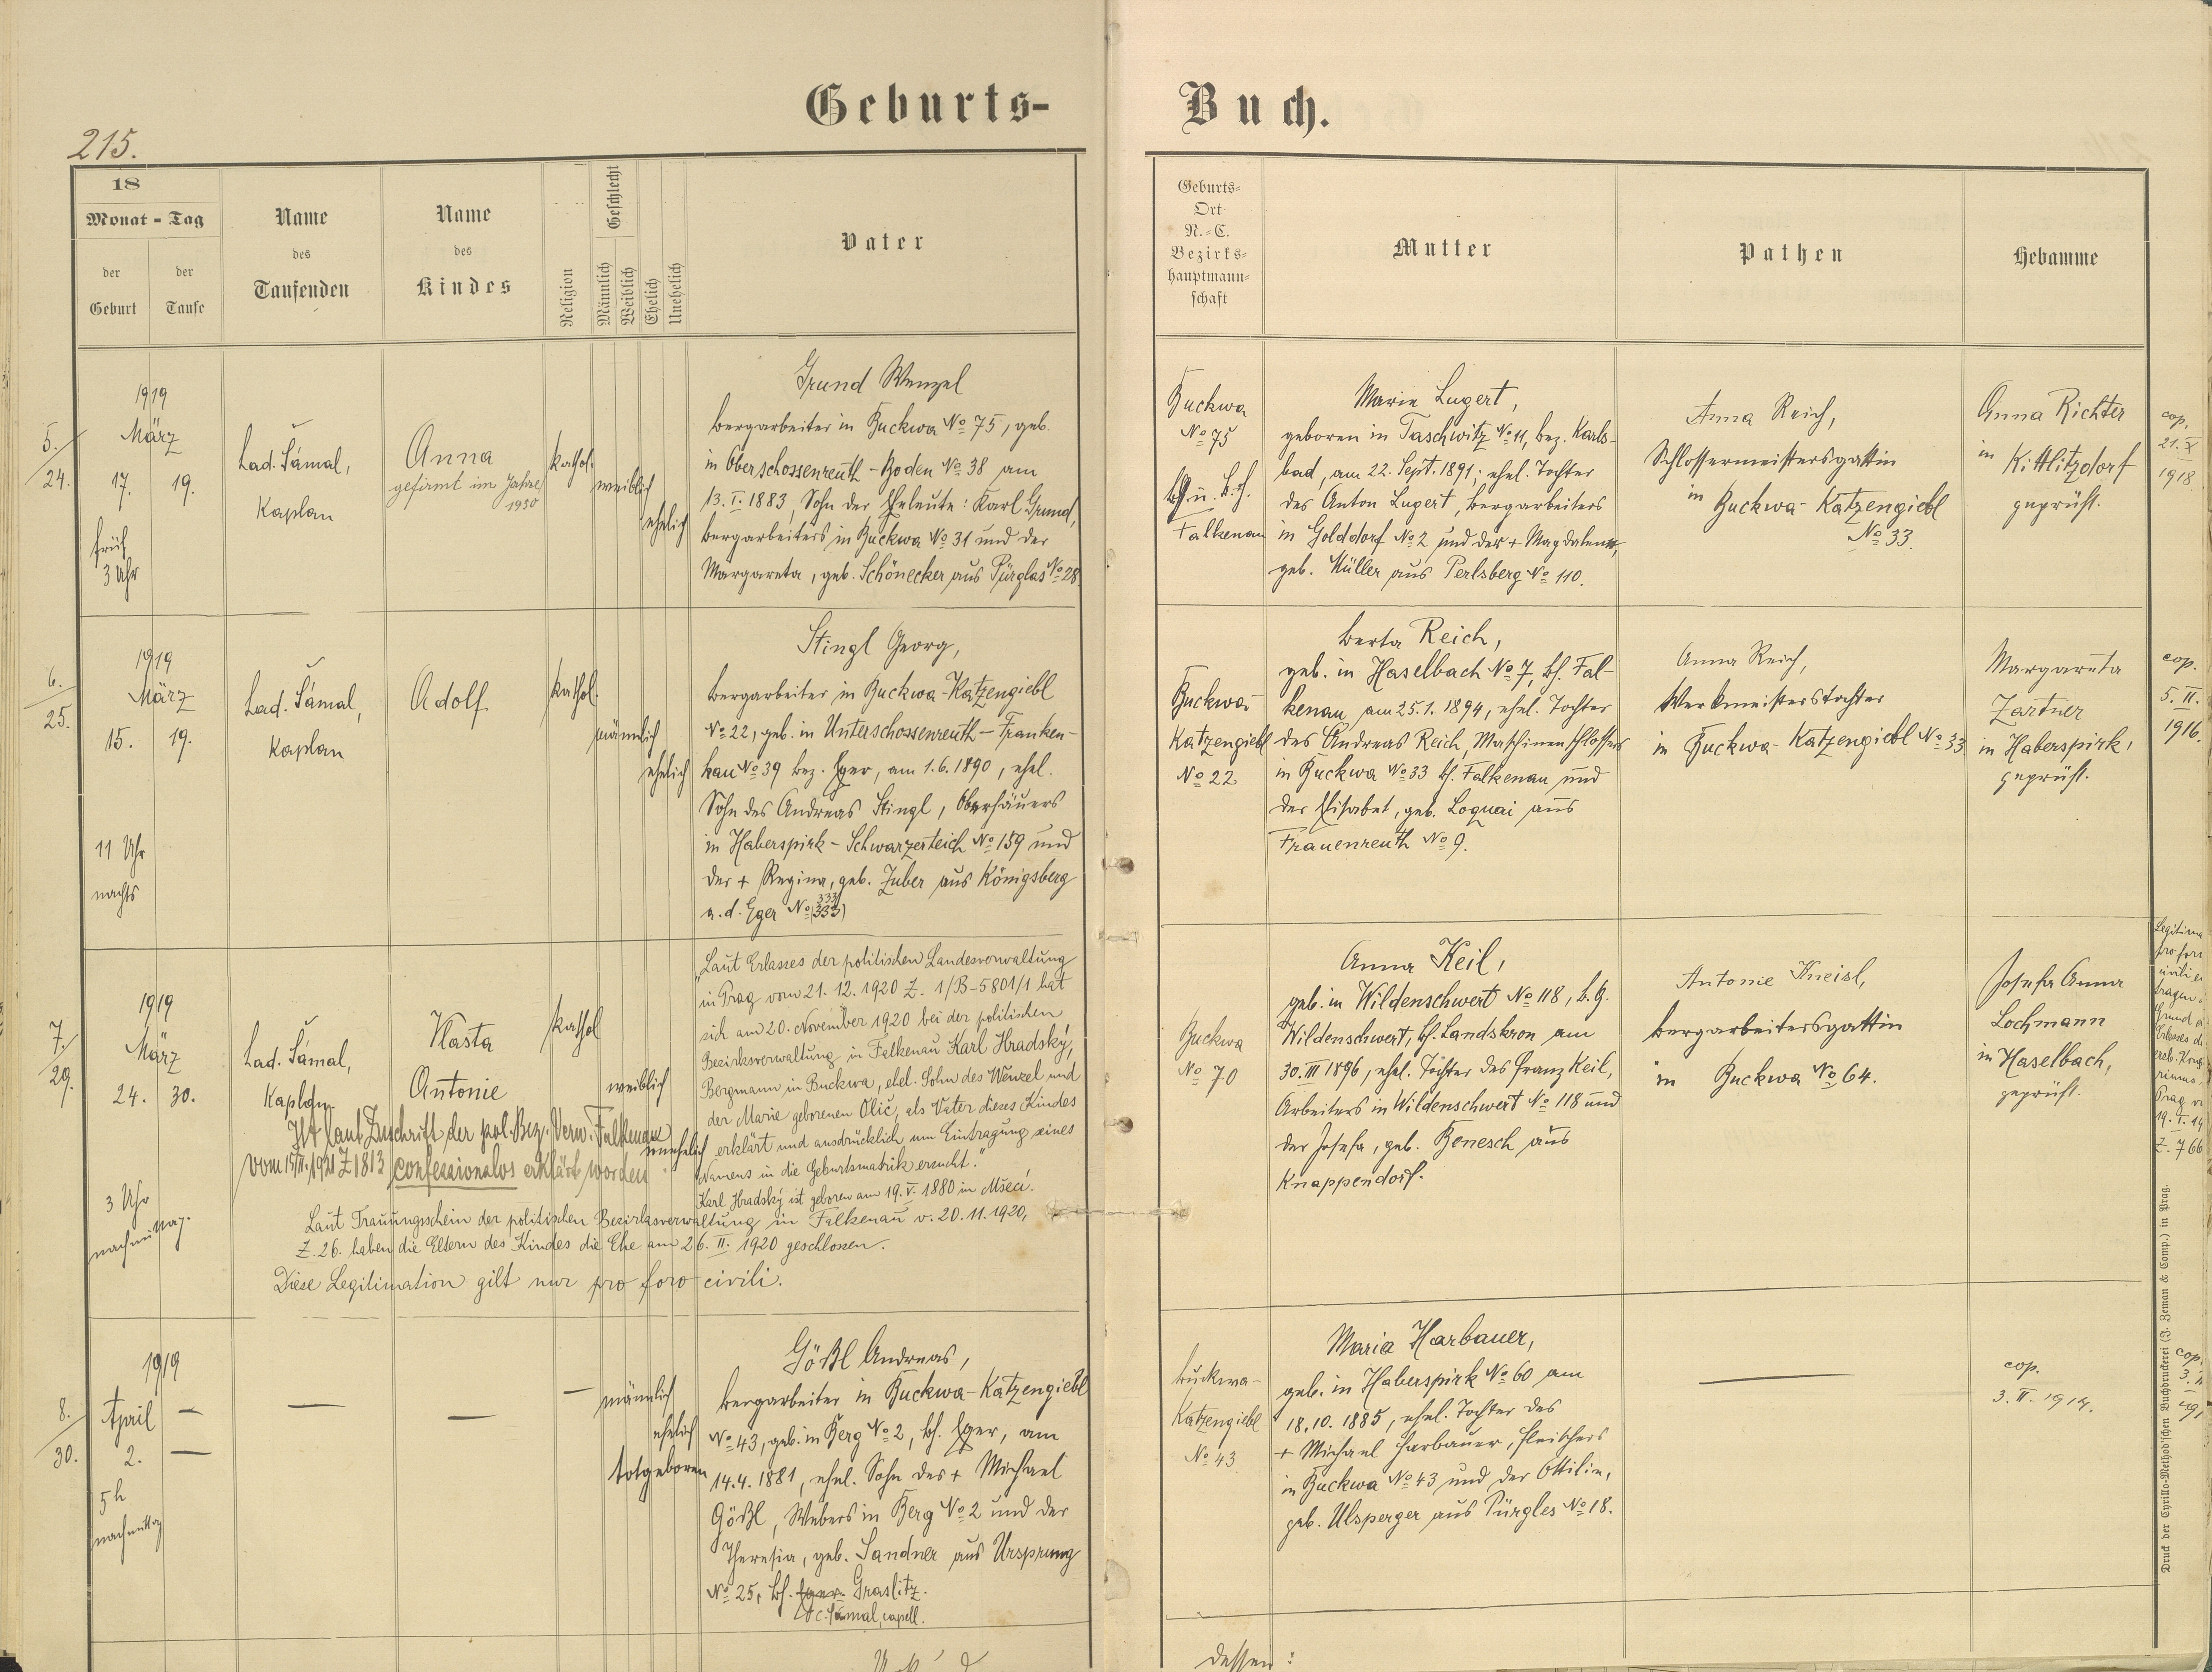 Geburts-
Buch.
215.
18
Monat - Tag
der
Geburt
der
Taufe
Name
des
Taufenden
Name
des
Kindes
Religion
Geschlecht
Männlich
Weiblich
Ehelich
Unehelich
Vater
Geburts-
Ort
N.-C.
Bezirks-
hauptmann-
schaft
Mutter
Pathen
Hebamme
5.
24.
1919
März
17. 19.
früh
3 Uhr
Lad. Šámal,
Kaplan
Anna
gefirmt im Jahre
1930
kathol.
weiblich
ehelich
Grund Wenzel
Bergarbeiter in Buckwa No 75, geb.
in Oberschossenreuth - Boden No 38 am
13. I. 1883, Sohn der Eheleute: Karl Grund,
Bergarbeiters in Buckwa No 31 und der
Margareta, geb. Schönecker aus Pürglas No 28.
Buckwa
No 75
Falkenau
Marie Lugert,
geboren in Taschwitz No 11, bez. Karls-
bad, am 22. Sept. 1891; ehel. Tochter
des Anton Lugert, Bergarbeiters
in Golddorf No 2 und der + Magdalena,
geb. Müller aus Perlsberg No 110.
Anna Reich,
Schlossermeistersgattin
in Buckwa-Katzengiebl
No 33.
Anna Richter
in Kittlitzdorf
geprüft.
cop.
21. X
1918.
6.
25.
1919
März
15. 19.
11 Uhr
nachts
Lad. Šámal,
Kaplan
Adolf
kathol.
männlich
ehelich
Stingl Georg,
Bergarbeiter in Buckwa-Katzengiebl
No 22, geb. in Unterschossenreuth - Franken-
hau No 39 bez. Eger, am 1.6.1890, ehel.
Sohn des Andreas Stingl, Oberhäuers
in Haberspirk - Schwarzerteich No 159 und
der + Regina, geb. Zuber aus Königsberg
a. d. Eger No 333
Buckwa-
Katzengiebl
No 22
Berta Reich,
geb. in Haselbach No 7, bh. Fal-
kenau, am 25.1.1894, ehel. Tochter
des Andreas Reich, Maschinenschlossers
in Buckwa No 33 bh. Falkenau und
der Elisabet, geb. Loquai aus
Frauenreuth No 9.
Anna Reich,
Werkmeisterstochter
in Buckwa-Katzengiebl No 33
Margareta
Zartner
in Haberspirk,
geprüft.
cop.
5. II.
1916.
7.
29.
1919
März
24. 30.
3 Uhr
nachmittag.
Lad. Šámal,
Kaplan
Vlasta
Antonie
kathol
weiblich
unehelich
"Laut Erlasses der politischen Landesverwaltung
in Prag vom 21. 12. 1920 Z. 1/B-5801/1 hat
sich am 20. November 1920 bei der politischen
Bezirksverwaltung in Falkenau Karl Hradský,
Bergmann in Buckwa, ehel. Sohn des Wenzel und
der Marie geborenen Olič, als Vater dieses Kindes
erklärt und ausdrücklich um Eintragung seines
Namens in die Geburtsmatrik ersucht."
Karl Hradský ist geboren am 19. V. 1880 in Mšeci.
Ist laut Zuschrift der pol. Bez. Verw. Falkenau
vom 15/II. 1921 Z 1813 confessionslos erklärt worden
Laut Trauungsschein der politischen Bezirksverwaltung in Falkenau v. 20. 11. 1920,
Z. 26. haben die Eltern des Kindes die Ehe am 26. II. 1920 geschlossen.
Diese Legitimation gilt nur pro foro civili.
Buckwa
No 70
Anna Keil,
geb. in Wildenschwert No 118, b. G.
Wildenschwert, bh. Landskron am
30. III 1896, ehel. Tochter des Franz Keil,
Arbeiters in Wildenschwert No 118 und
der Josefa, geb. Benesch aus
Knappendorf.
Antonie Kneisl,
Bergarbeitersgattin
in Buckwa No 64.
Josefa Anna
Lochmann
in Haselbach,
geprüft.
8.
30.
1919
April
2.
5 h
nachmittag
männlich
ehelich
totgeboren
Gößl Andreas,
Bergarbeiter in Buckwa-Katzengiebl
No 43, geb. in Berg No 2, bh. Eger, am
14.4.1881, ehel. Sohn des + Michael
Gößl, Webers in Berg No 2 und der
Theresia, geb. Sandner aus Ursprung
No 25, bh. Eger Graslitz.
Šámal, capell.
Buckwa-
Katzengiebl
No 43
Maria Harbauer,
geb. in Haberspirk No 60 am
18.10.1885, ehel. Tochter des
+ Michael Harbauer, Fleischers
in Buckwa No 43 und der Ottilie,
geb. Ulsperger aus Pürgles No 18.
cop.
3. II. 1914.
cop.
Druck der Cyrillo-Method'schen Buchdruckerei (J. Zeman & Comp.) in Prag.
dessen: